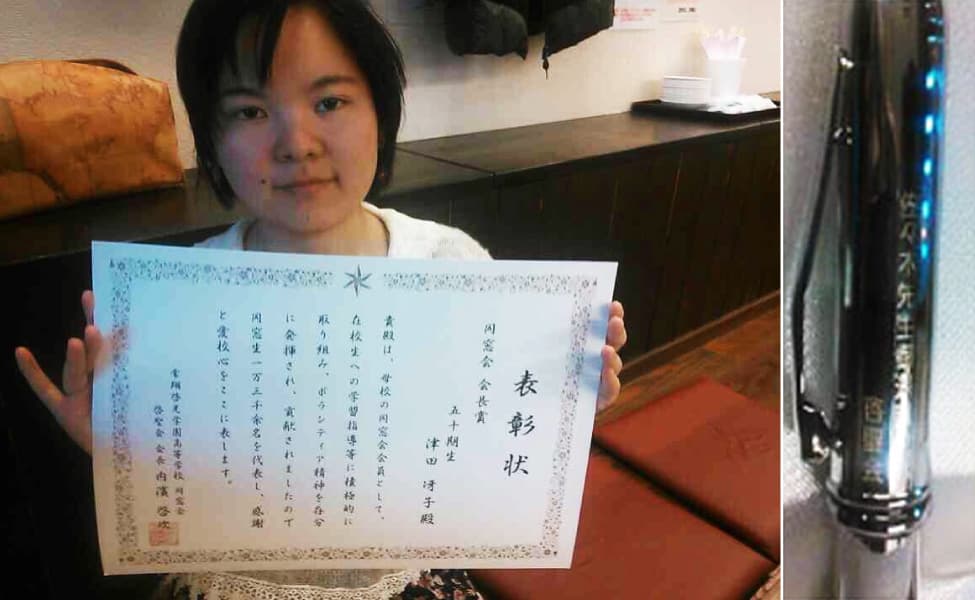 表彰状
同窓会 会長賞
五十期生
津田 冴子殿
貴殿は、母校の同窓会会員として、
在校生への学習指導等に積極的に
取り組み、ボランティア精神を存分
に発揮され、貢献されましたので
同窓生一万三千余名を代表し、感謝
と愛校心をここに表します。
常翔啓光学園高等学校 同窓会
啓聖会 会長 内濱 啓次
佐々木先生